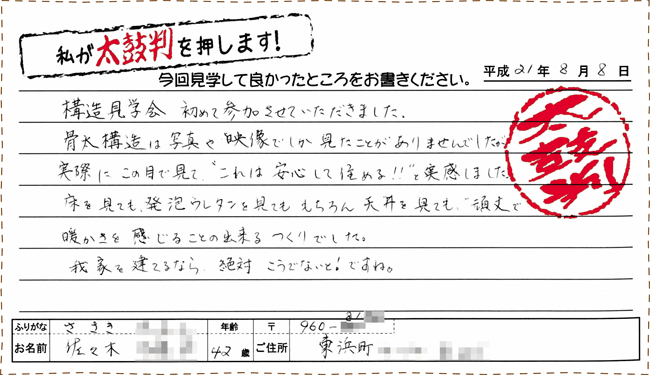 私が太鼓判を押します!
今回見学して良かったところをお書きください。 平成21年8月8日
構造見学会 初めて参加させていただきました.
骨太構造は写真や映像でしか見たことがありませんでしたが
実際にこの目で見て、"これは安心して住める!!"と実感しました。
床を見ても、発泡ウレタンを見ても もちろん 天井を見ても、"頑丈で
暖かさを感じることの出来る つくりでした。
我家を建てるなら、絶対 こうでないと!ですね。
太鼓判
ふりがな ささき 年齢 〒 960-
お名前 佐々木 42歳 ご住所 東浜町